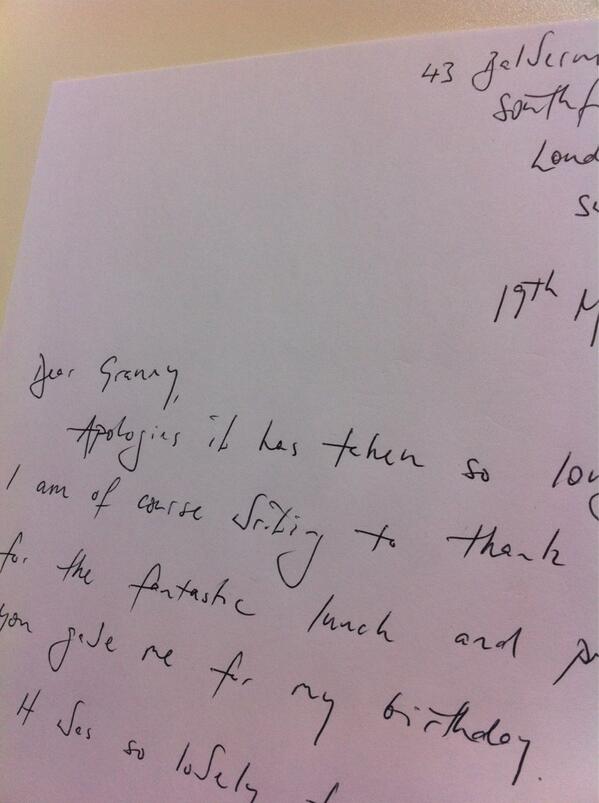 43
Southf
Lond
19th M
Dear Granny,
Apologies it has taken so long
I am of course writing to thank
for the fantastic lunch and
you gave me for my birthday.
It was so lovely